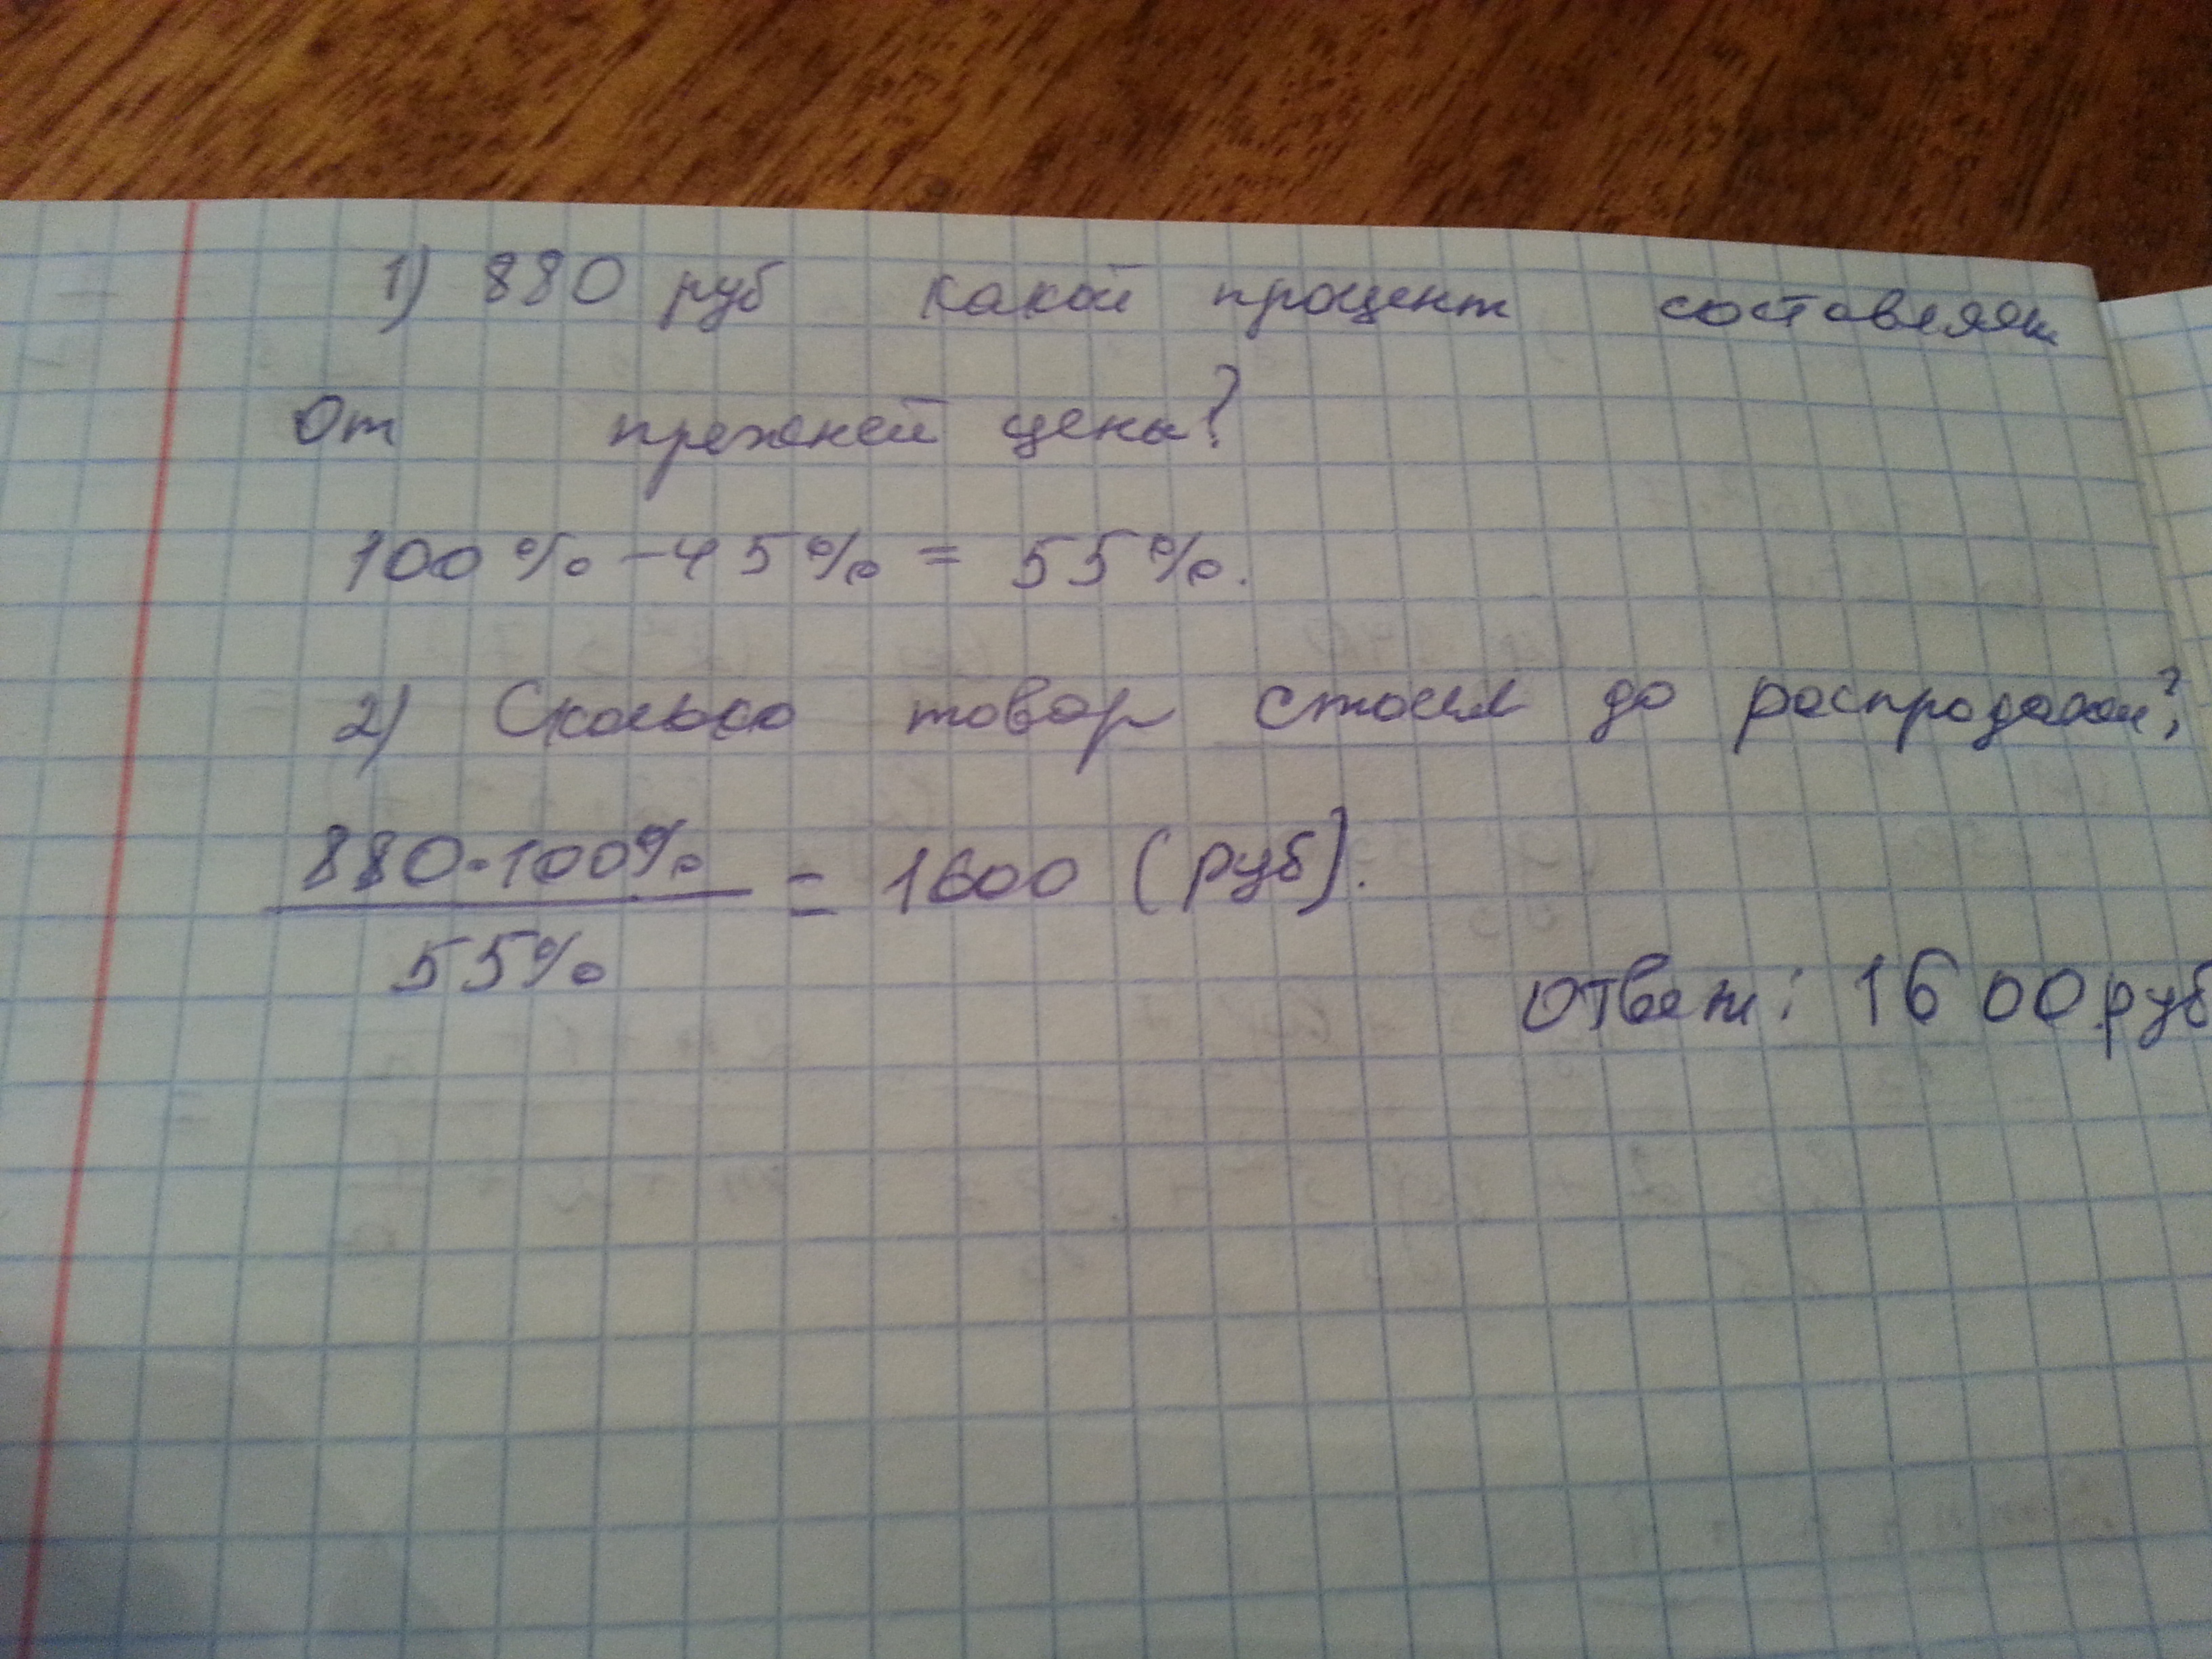 1) 880 руб какой процент составляет
От прежней цены?
100% - 45% = 55%.
2) Сколько товар стоил до распродажи?
880·100%
55%
= 1600 (руб).
Ответ: 1600 руб